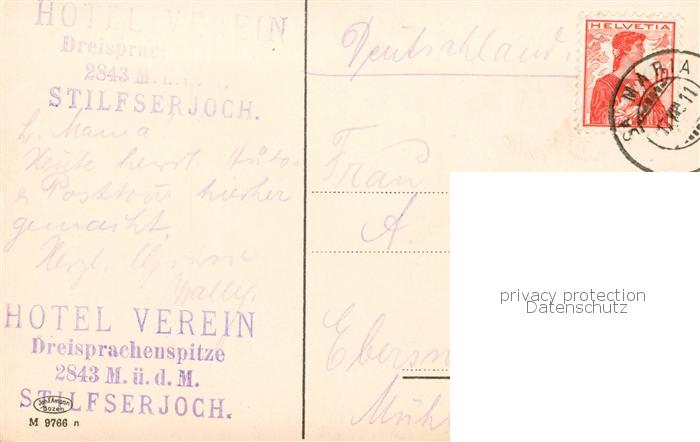 HOTEL VEREIN
Dreisprac
2843 M. ü. d. M.
STILFSERJOCH.
L. Mama!
Heute herrl. Auto-
Posttour hierher
gemacht.
Herzl. Grüsse
HOTEL VEREIN
Dreisprachenspitze
2843 M. ü. d. M.
STILFSERJOCH.
Joh. F. Amonn
Bozen
M 9766 n
Deutschland.
HELVETIA
STA MARIA
Frau
A.
privacy protection
Datenschutz